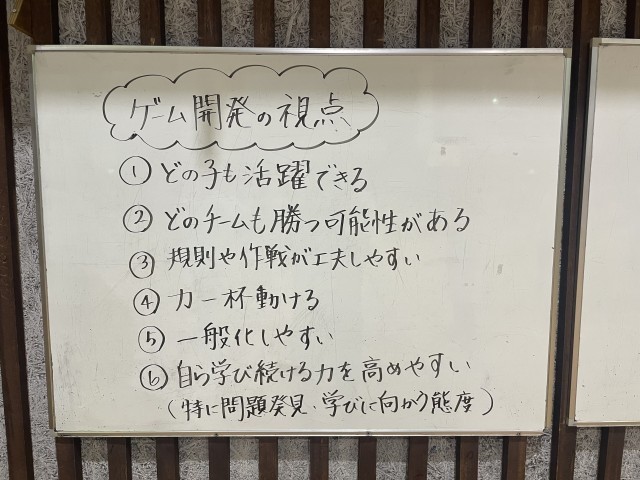 ゲーム開発の視点
① どの子も活躍できる
② どのチームも勝つ可能性がある
③ 規則や作戦が工夫しやすい
④ 力一杯動ける
⑤ 一般化しやすい
⑥ 自ら学び続ける力を高めやすい
(特に問題発見・学びに向かう態度)